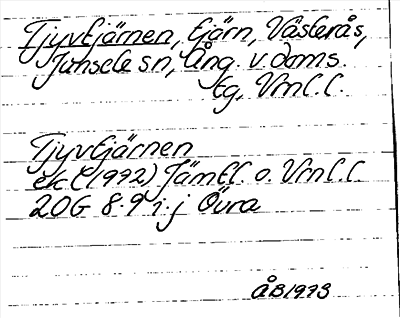 Tjyvtjärnen, tjärn, Västerås,
Junsele sn, Ång. v. doms.
tg, Vrnl. l.
Tjyvtjärnen
ekl (1972) Jämtl. o. Vrnl. l
20G 8-9 i-j Övra
ÅB1973